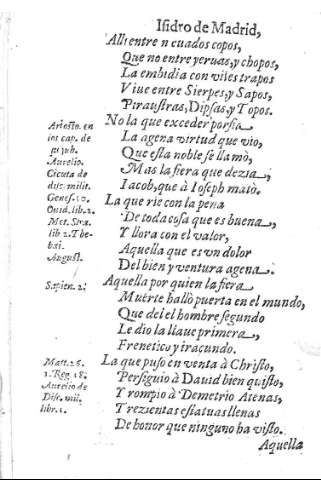 Isidro de Madrid,
Alli entre neuados copos,
Que no entre yeruas, y chopos,
La embidia con viles trapos
Viue entre Sierpes, y Sapos,
Piraustras, Dipsas, y Topos.
No la que exceder porfia
La agena virtud que vio,
Que esta noble se llamò,
Mas la fiera que dezia,
Iacob, que à Ioseph matò.
La que rie con la pena
De toda cosa que es buena,
Y llora con el valor,
Aquella que es vn dolor
Del bien y ventura agena.
Aquella por quien la fiera
Muerte hallò puerta en el mundo,
Que del el hombre segundo
Le dio la llaue primera,
Frenetico y iracundo.
La que puso en venta à Christo,
Persiguio à Dauid bien quisto,
Y rompio à Demetrio Atenas,
Trezientas estatuas llenas
De honor que ninguno ha visto.
Aquella
Ariosto. en
los cap. de
Aurelio.
Cicuta de
disc. milit.
Genes. 37.
Ouid. lib. 2.
Met.
lib 2. Thebai.
August.
Sapien. 2.
Matt. 26.
1. Reg 18.
Aurelio de
Disc. mil.
libr. 1.